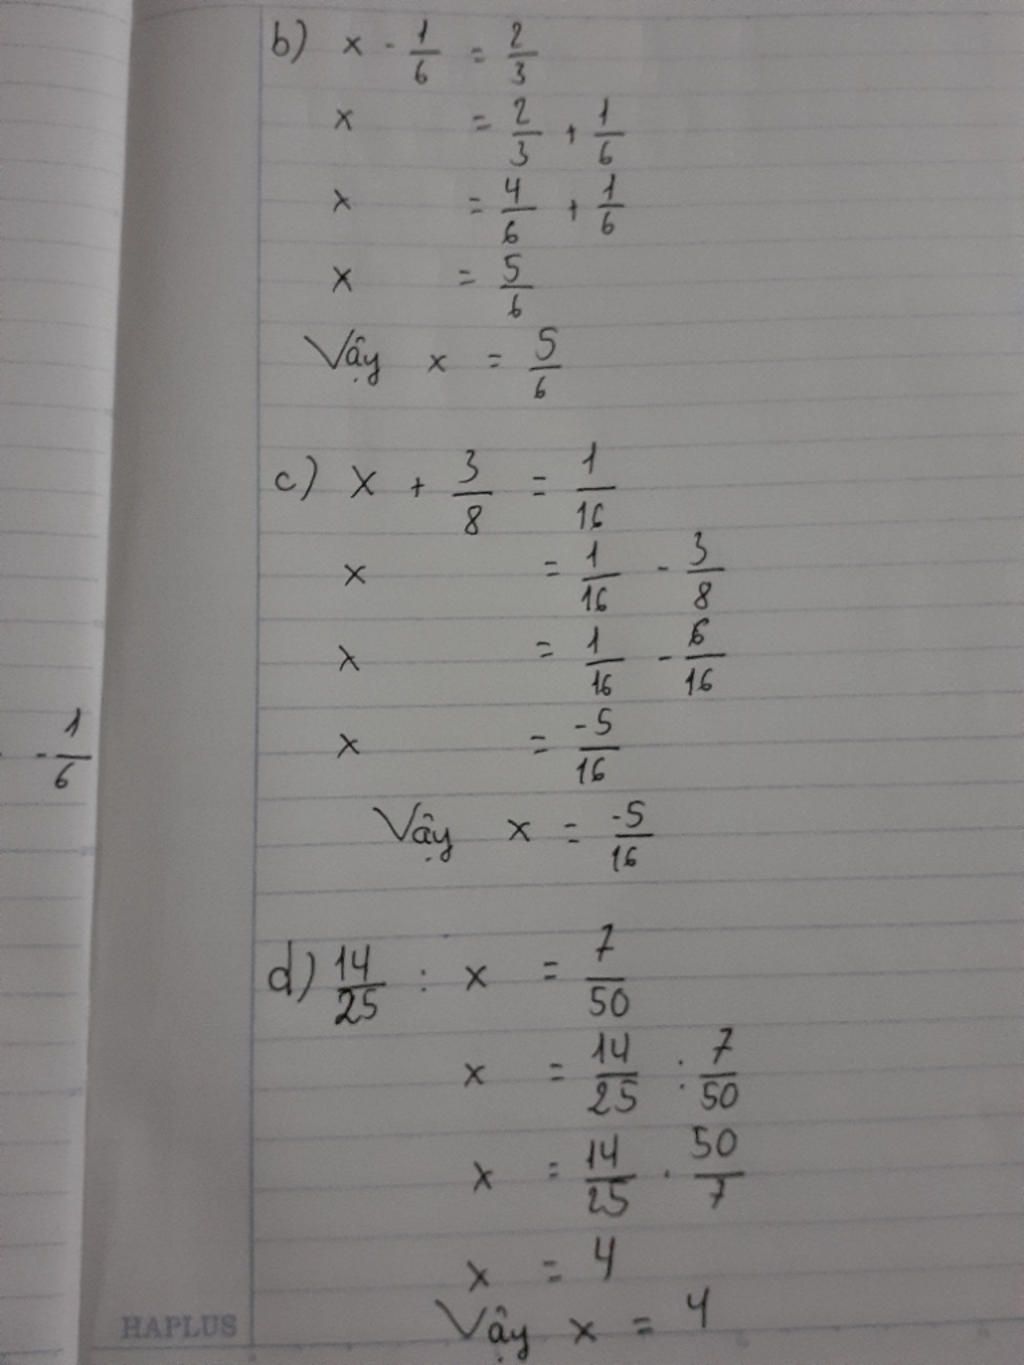 b) x - 1/6 = 2/3
x = 2/3 + 1/6
x = 4/6 + 1/6
x = 5/6
Vậy x = 5/6
c) x + 3/8 = 1/16
x = 1/16 - 3/8
x = 1/16 - 6/16
- 1/6
x = -5/16
Vậy x = -5/16
d) 14/25 : x = 7/50
x = 14/25 : 7/50
x = 14/25 . 50/7
x = 4
Vậy x = 4
HAPLUS